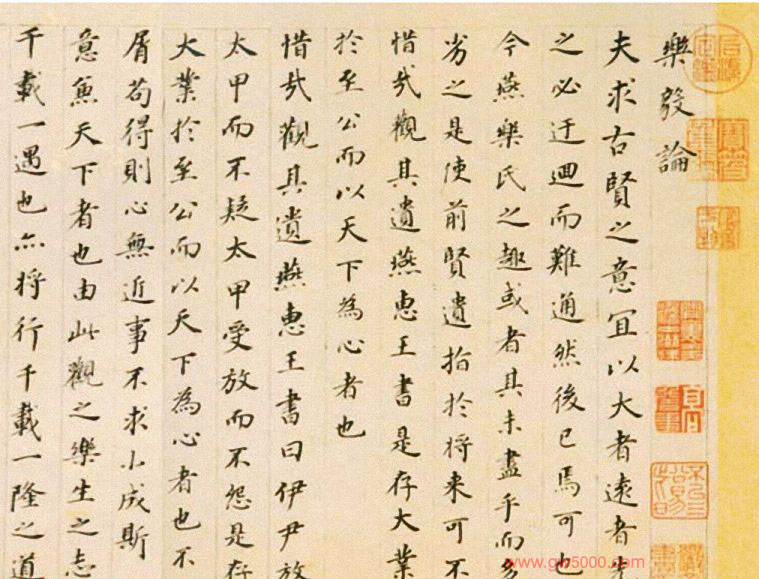 樂毅論
夫求古賢之意冝以大者遠者先
之必迂迴而難通然後已焉可也
今燕樂氏之趣或者其未盡乎而多
劣之是使前賢遺指於将来可不
惜㢤觀其遺燕惠王書是存大業
於至公而以天下為心者也
惜㢤觀其遺燕惠王書曰伊尹放
太甲而不疑太甲受放而不怨是存
大業於至公而以天下為心者也不
屑苟得則心無近事不求小成斯
意兼天下者也由此觀之樂生之志
千載一遇也亦将行千載一隆之道
www.gw5000.com